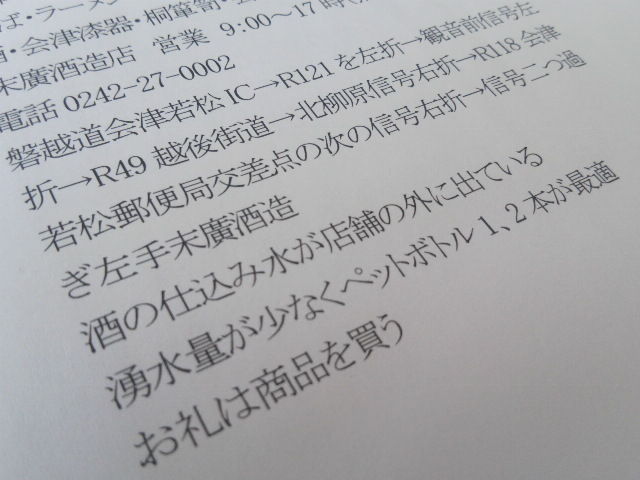 ば・ラーメン
酒・会津漆器・桐箪笥・会
末廣酒造店　営業　9:00～17時
電話 0242-27-0002
磐越道会津若松IC→R121を左折→観音前信号左
折→R49越後街道→北柳原信号右折→R118会津
若松郵便局交差点の次の信号右折→信号二つ過
ぎ左手末廣酒造
酒の仕込み水が店舗の外に出ている
湧水量が少なくペットボトル1、2本が最適
お礼は商品を買う